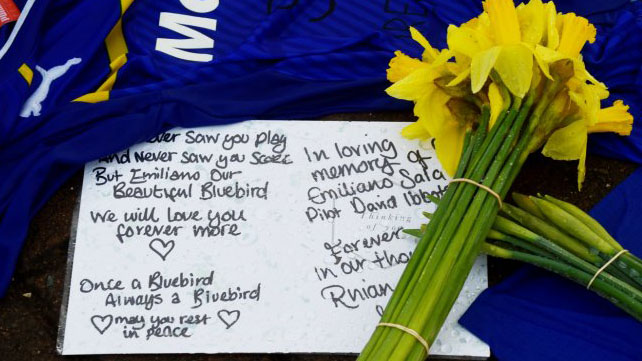 Never Saw You Play
And Never saw you Score
But Emiliano Our
Beautiful Bluebird
We will love you
forever more
Once a Bluebird
Always a Bluebird
may you rest
in peace
In loving
memory of
Emiliano Sala
Pilot David
Thinking
of
Forever
in our